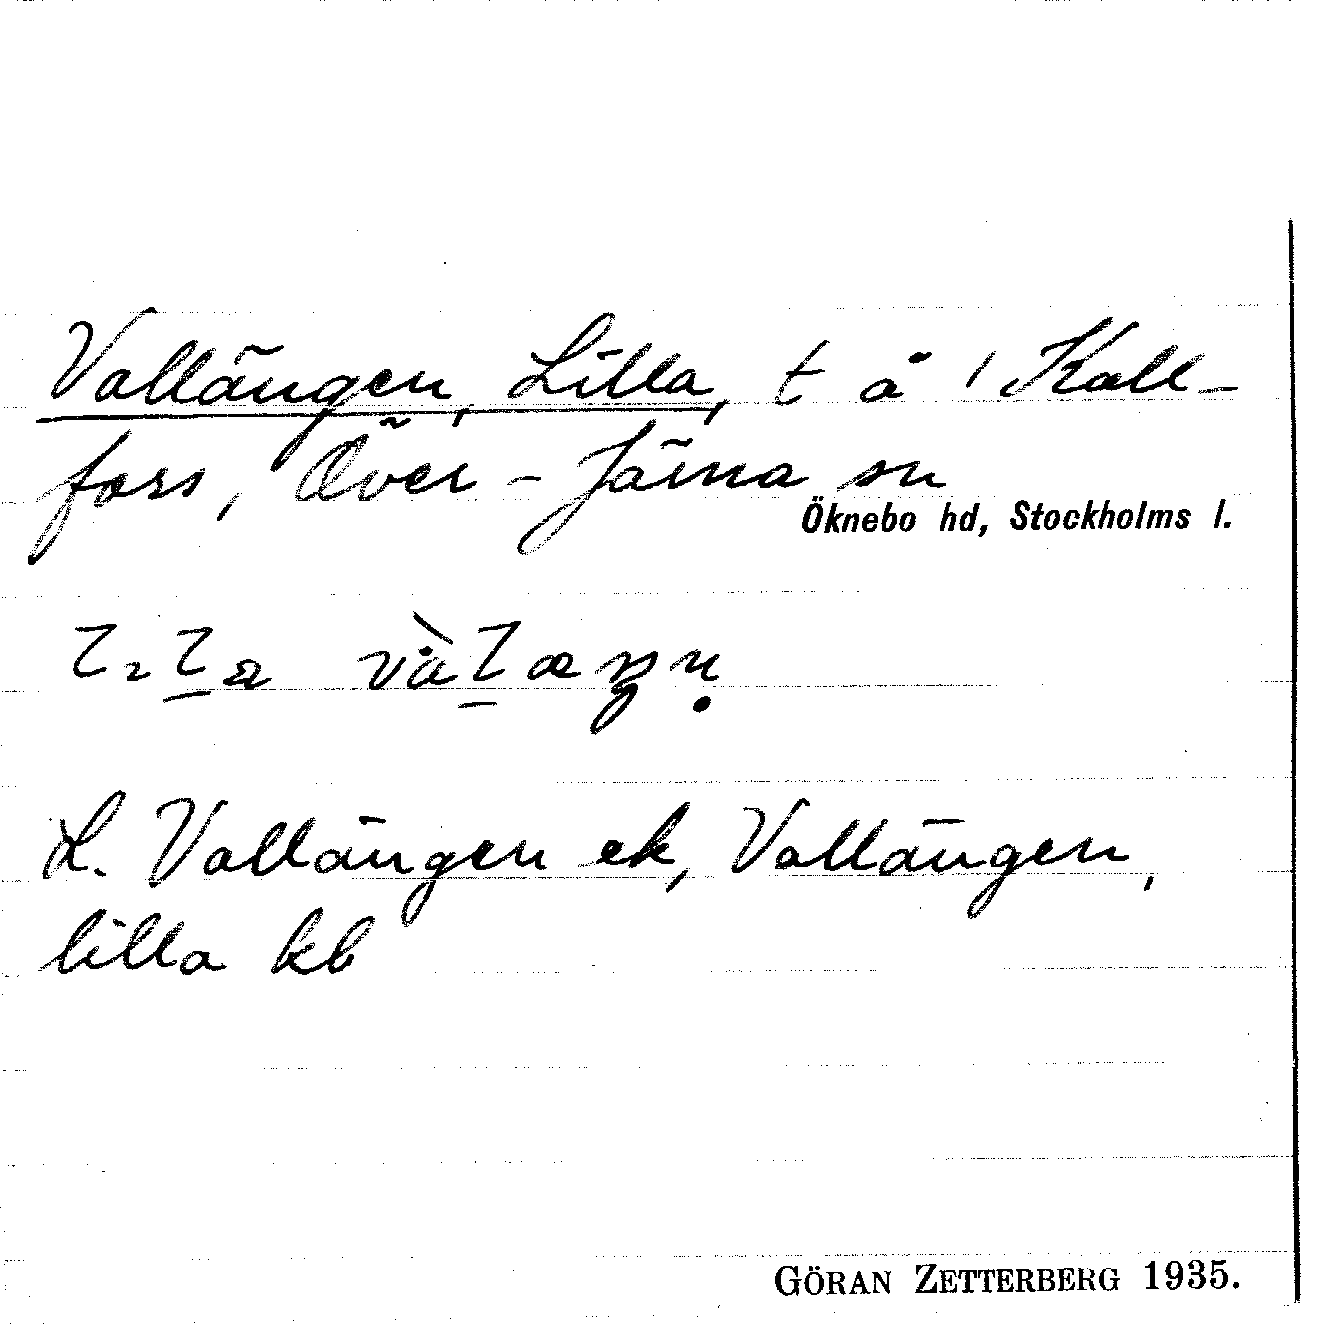 Vallängen, Lilla, t å / Kall-
fors, Över-Järna sn
Öknebo hd, Stockholms l.
L. Vallängen ek, Vallängen,
lilla kb
GÖRAN ZETTERBERG 1935.